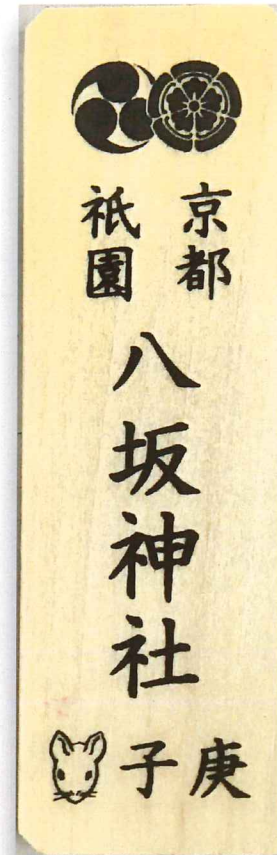 京都
祇園
八坂神社
庚子